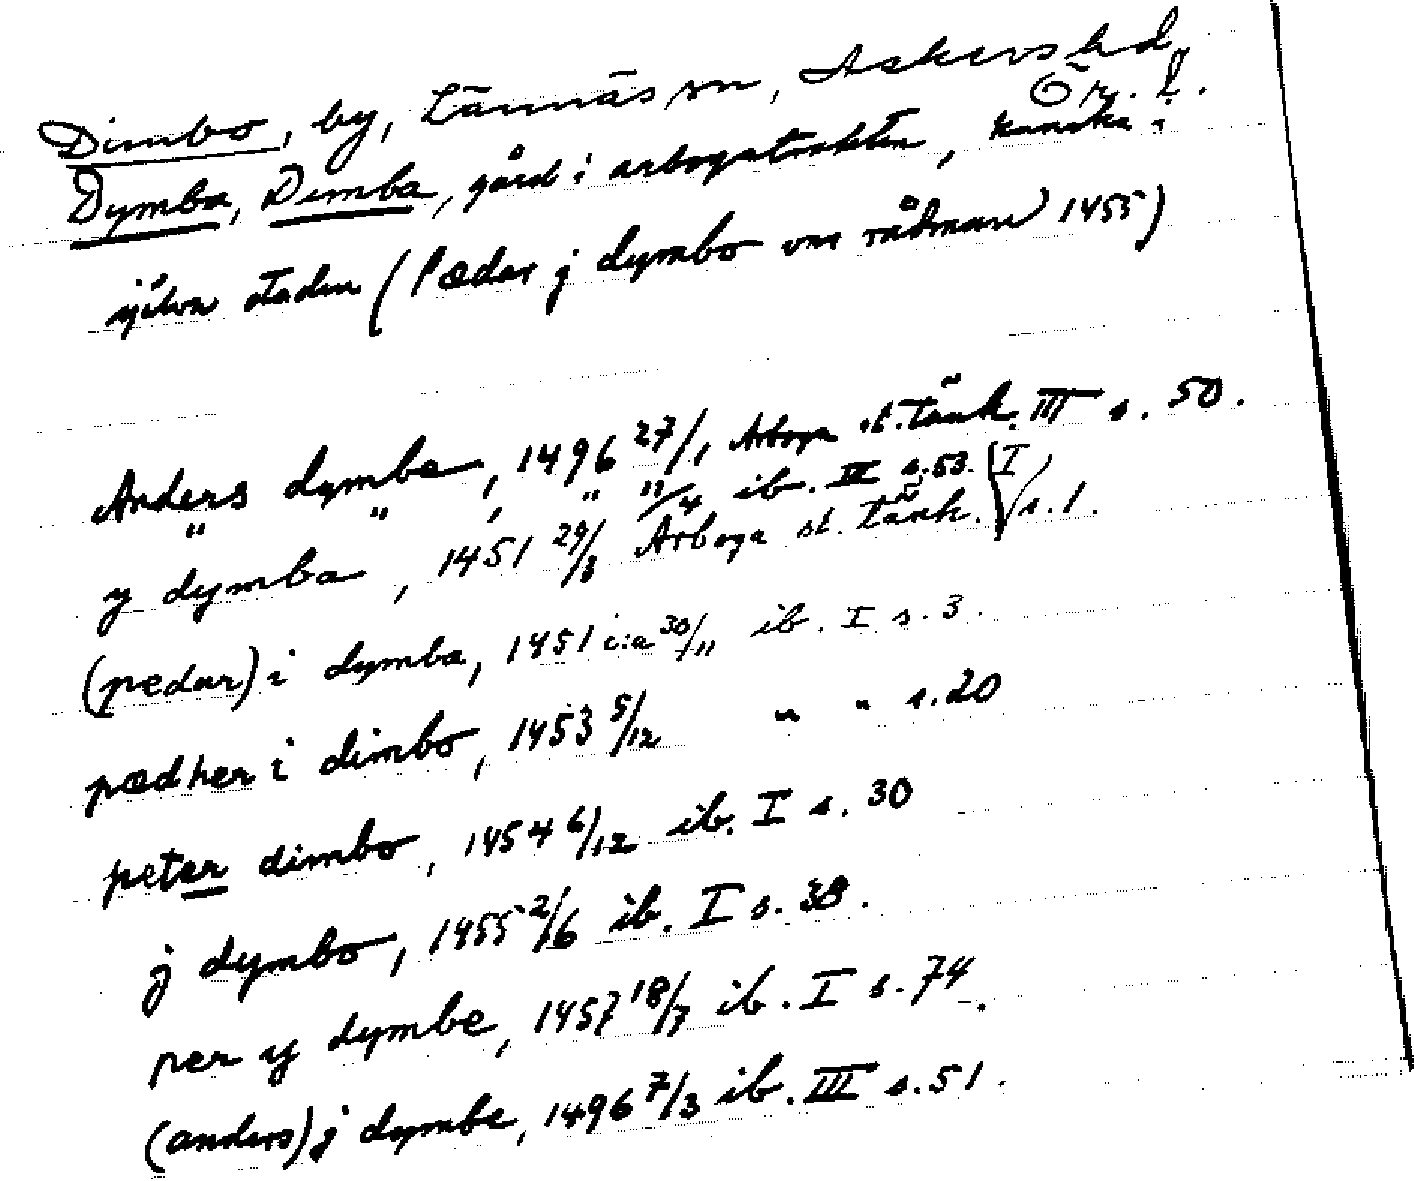 Dimbo, by, Lännäs sn, Askers hd,
Ör. l.
Dymba, Dimba, gård i arbogatrakten, kanske i
själva staden (Pædar j dymbo var rådman 1455)
Anders dymbe, 1496 27/1 Arboga st. tänk. III s. 50.
" " , " "/4 ib. III s. 53.
y dymba, 1451 29/3 Arboga st. tänk. I s. 1.
(pedar) i dymba, 1451 c:a 30/11 ib. I s. 3.
pædher i dimbo, 1453 5/12 " " s. 20
peter dimbo, 1454 6/12 ib. I s. 30
j dymbo, 1455 2/6 ib. I s. 38.
per y dymbe, 1457 18/7 ib. I s. 74.
(anders) j dymbe, 1496 7/3 ib. III s. 51.